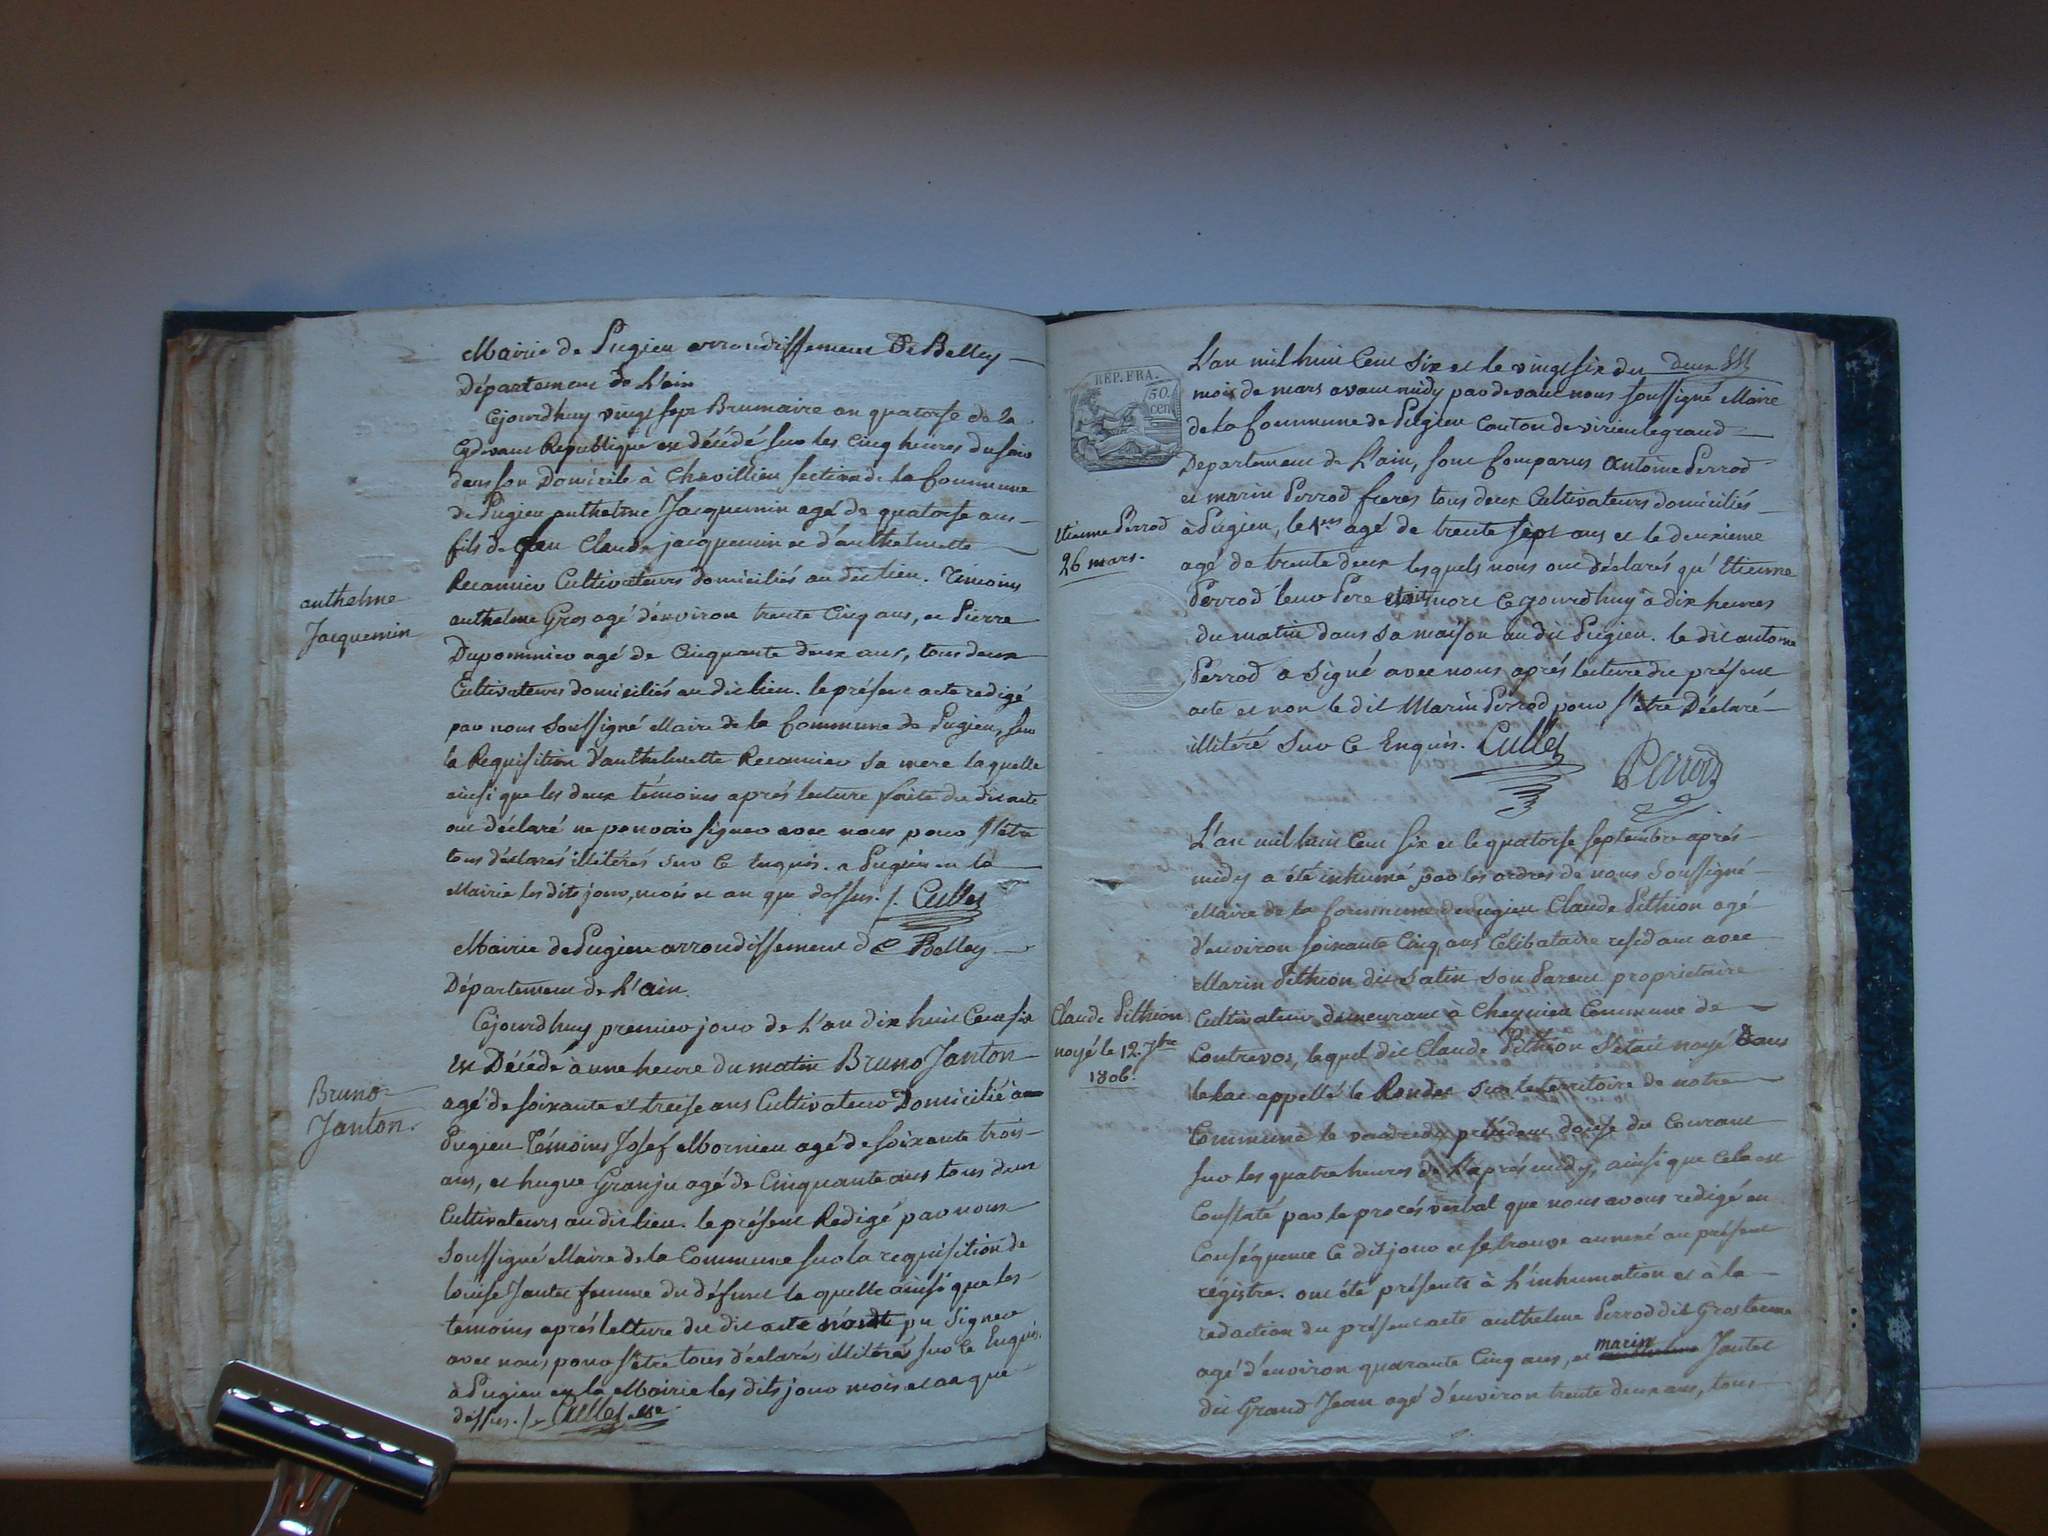 Mairie de Pugieu arrondissement De Belley
Département de L'ain
Cejourdhuy vingt sept Brumaire an quatorse de la
Cydevant Republique est décédé sur les cinq heures du soir
dans son Domicile à Chavillieu section de la Commune
de Pugieu anthelme Jacquemin agé de quatorse ans
fils de feu Claude jacquemin et d'anthelmette
Récamier Cultivateurs domiciliés au dit lieu. Témoins
anthelme
Jacquemin
anthelme Gros agé d'environ trente Cinq ans, et Pierre
Dupommier agé de Cinquante deux ans, tous deux
Cultivateurs domiciliés au dit lieu. le présent acte redigé
par nous Soussigné Maire de la Commune de Pugieu, sur
la Requisition d'anthelmette Récamier sa mere laquelle
ainsi que les deux témoins après lecture faite du dit acte
ont déclaré ne pouvoir signer avec nous pour s'être
tous déclarés illitérés sur ce Enquis. a Pugieu en la
Mairie les dits jour, mois et an que dessus. /. Cullet
Mairie de Pugieu arrondissement de Belley
Département de L'ain.
Cejourdhuy premier jour de L'an dix huit Cent six
est Décédé à une heure du matin Bruno Janton
Bruno
Janton.
agé de soixante et treise ans Cultivateur Domicilié à
Pugieu Témoins Josef Mornieu agé de soixante trois
ans, et hugue Granju agé de Cinquante ans tous deux
Cultivateurs au dit lieu. le présent Redigé par nous
Soussigné Maire de la Commune sur la requisition de
louise Jantet femme du défunt la quelle ainsi que les
temoins après lecture du dit acte n'ont pu Signer
avec nous pour s'être tous déclarés illitérés sur ce Enquis.
à Pugieu en la Mairie les dits jour mois et an que
dessus. /. Cullet
L'an mil huit Cent Six et le vingt six du
REP. FRA.
50
cen
mois de mars avant midy par devant nous soussigné Maire
de la Commune de Pugieu Canton de virieu le grand
Departement de L'ain, sont Comparus Antoine Perrod
et marin Perrod freres tous deux Cultivateurs domiciliés
Etienne Perrod
26 mars.
à Pugieu, le 1er agé de trente sept ans et le deuxieme
agé de trente deux lesquels nous ont déclarés qu'Etienne
Perrod leur Pere étoit mort Cejourdhuy à dix heures
du matin dans sa mayson au dit Pugieu. le dit antoine
Perrod a signé avec nous après lecture du présent
acte et non le dit Marin Perrod pour s'être Déclaré
illitéré sur ce Enquis. Cullet
Perrod
L'an mil huit Cent six et le quatorse septembre après
midy a été inhumé par les ordres de nous Soussigné
Maire de la Commune de Pugieu Claude Pithion agé
d'environ soixante Cinq ans Célibataire résidant avec
Marin Pithion dit Satin son Parent propriétaire
Claude Pithion
noyé le 12. 7bre
1806.
Cultivateur demeurant à Cheynieu Commune de
Contrevos, lequel dit Claude Pithion s'étoit noyé Dans
le Lac appellé le Rondet sur le territoire de notre
Commune le vendredy précédent douse du Courant
sur les quatre heures de L'après midy, ainsi que Cela est
Constaté par le procés verbal que nous avons redigé en
Conséquence ce dit jour et se trouve annexé au présent
régistre. ont été présents à L'inhumation et à la
redaction du présent acte anthelme Perrod dit Gros terme
agé d'environ quarante Cinq ans, et marin Jantet
dit Grand Jean agé d'environ trente deux ans, tous